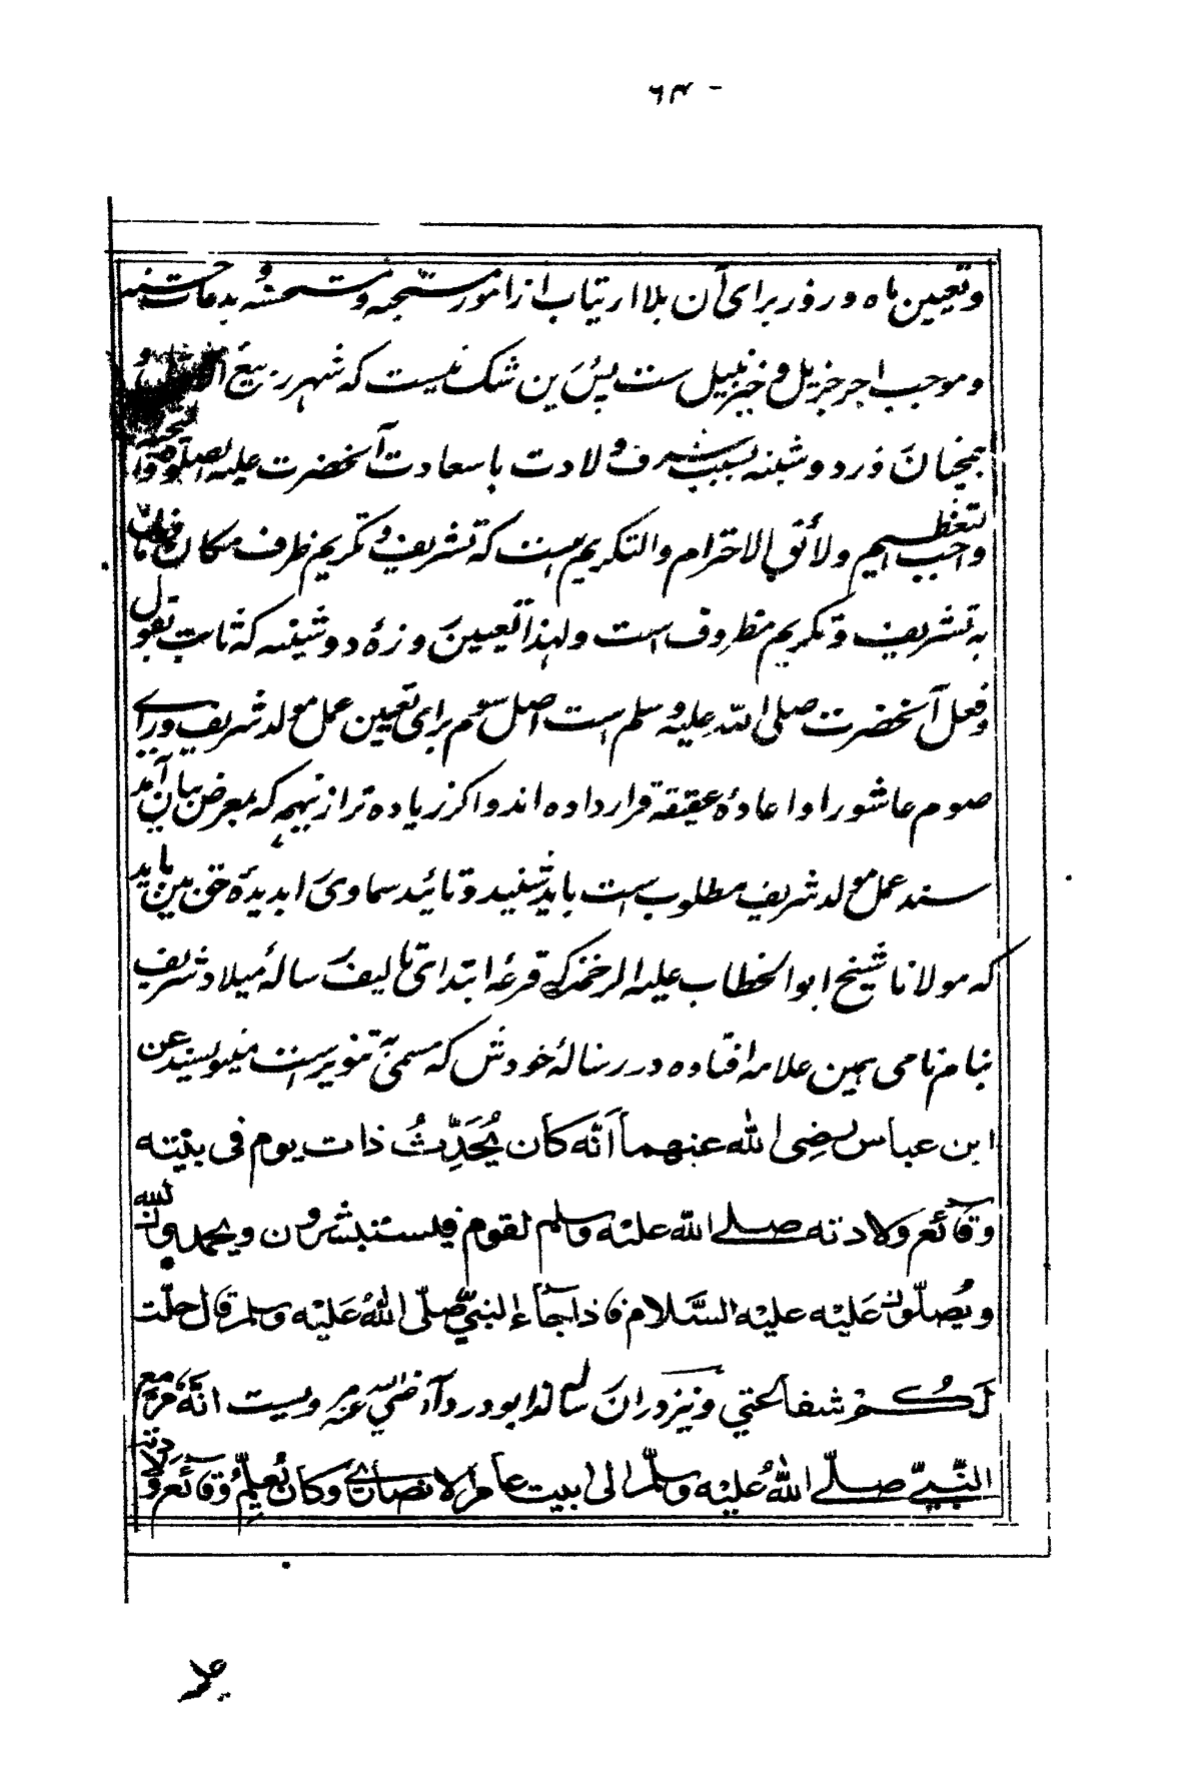 ۶۳ -
وتعیین ماه و روز برای آن بلا ارتیاب از امور مستحبه و مستحسنه بدعات حسنه
وموجب اجر جزیل و خیر نبیل ست پس ین شک نیست که شهر ربیع
همچنان روز دوشنبه بسبب شرف ولادت با سعادت آنحضرت علیه الصلوة والتحیة
واجب التعظیم ولائق الاحترام والتکریم است که تشریف و تکریم ظرف مکان
به تشریف و تکریم مظروف است ولهذا تعیین روزهٔ دوشنبه که ثابت بقول
وفعل آنحضرت صلی الله علیه وسلم است اصل سوم برای تعیین عمل مولد شریف ورای
صوم عاشورا واعادهٔ عقیقه قرار داده اند واکر زیاده تر از ینهم که بمعرض بیان آمد
سند عمل مولد شریف مطلوب ست باید شنید وتائید سماوی را بدیدهٔ حق بین باید
که مولانا شیخ ابو الخطاب علیه الرحمة که قرعهٔ ابتدای تالیف رسالهٔ میلاد شریف
بنام نامی همین علامه افتاده در رسالهٔ خودش که مسمی به تنویرست مینویسند عن
ابن عباس رضی الله عنهما اَنّه کَان یُحَدِّثُ ذات یوم فی بیْتِه
وقَائع ولادته صلے الله علیْه وسلم لقوم فیستبشرون ویحمدون الله
ویُصلّون عَلیْه علیْه السَّلام فاذا جَاءَ النبیّ صلّی اللهُ عَلیْه وسلم قال حلّت
لَکُمْ شفاعتی ونیز دران رساله از ابودرداء رضی الله عنه مرویست انّهُ مَرّ مع
النّبیّ صلّے اللهُ علیْه وسلّم الی بیت عامر الانصاری وکان یُعلّمُ وقائع ولادته